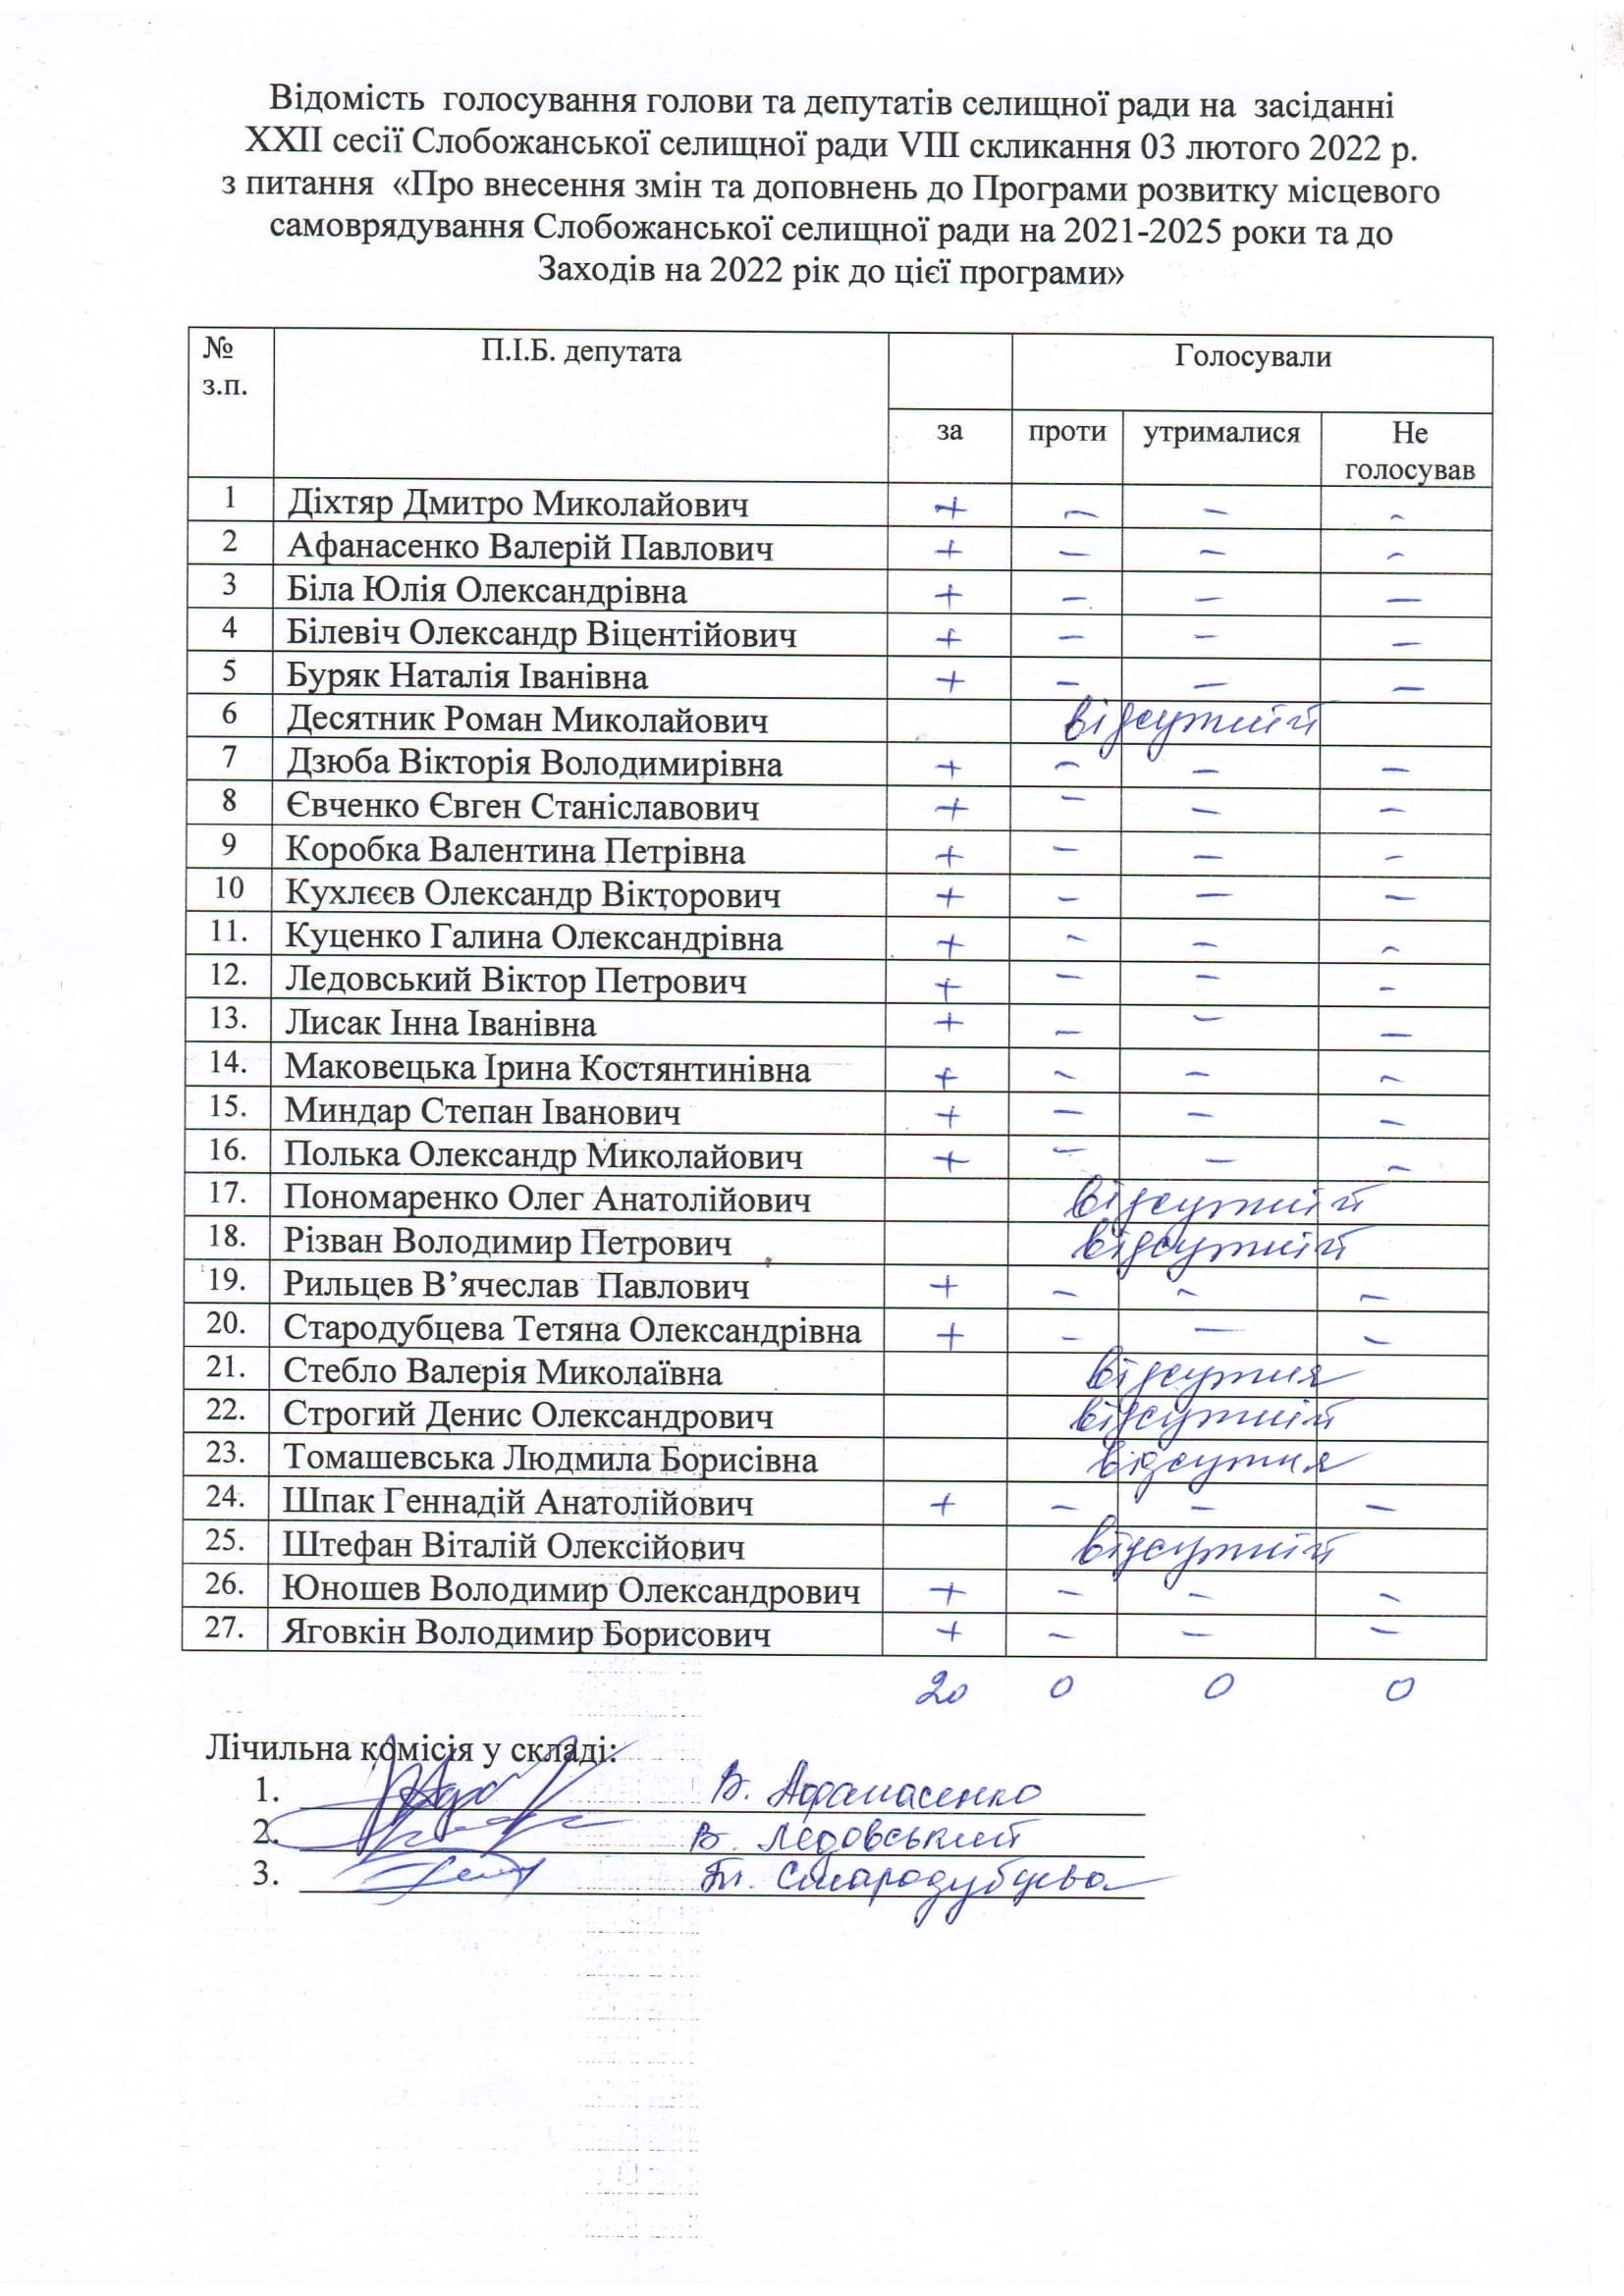 Відомість голосування голови та депутатів селищної ради на засіданні
XXII сесії Слобожанської селищної ради VIII скликання 03 лютого 2022 р.
з питання «Про внесення змін та доповнень до Програми розвитку місцевого
самоврядування Слобожанської селищної ради на 2021-2025 роки та до
Заходів на 2022 рік до цієї програми»
№ з.п. П.І.Б. депутата Голосували
за проти утрималися Не голосував
1 Діхтяр Дмитро Миколайович + – – –
2 Афанасенко Валерій Павлович + – – –
3 Біла Юлія Олександрівна + – – –
4 Білевіч Олександр Віцентійович + – – –
5 Буряк Наталія Іванівна + – – –
6 Десятник Роман Миколайович відсутній
7 Дзюба Вікторія Володимирівна + – – –
8 Євченко Євген Станіславович + – – –
9 Коробка Валентина Петрівна + – – –
10 Кухлєєв Олександр Вікторович + – – –
11. Куценко Галина Олександрівна + – – –
12. Ледовський Віктор Петрович + – – –
13. Лисак Інна Іванівна + – – –
14. Маковецька Ірина Костянтинівна + – – –
15. Миндар Степан Іванович + – – –
16. Полька Олександр Миколайович + – – –
17. Пономаренко Олег Анатолійович відсутній
18. Різван Володимир Петрович відсутній
19. Рильцев В’ячеслав Павлович + – – –
20. Стародубцева Тетяна Олександрівна + – – –
21. Стебло Валерія Миколаївна відсутня
22. Строгий Денис Олександрович відсутній
23. Томашевська Людмила Борисівна відсутня
24. Шпак Геннадій Анатолійович + – – –
25. Штефан Віталій Олексійович відсутній
26. Юношев Володимир Олександрович + – – –
27. Яговкін Володимир Борисович + – – –
20 0 0 0
Лічильна комісія у складі:
1. В. Афанасенко
2. В. Ледовський
3. Т. Стародубцева